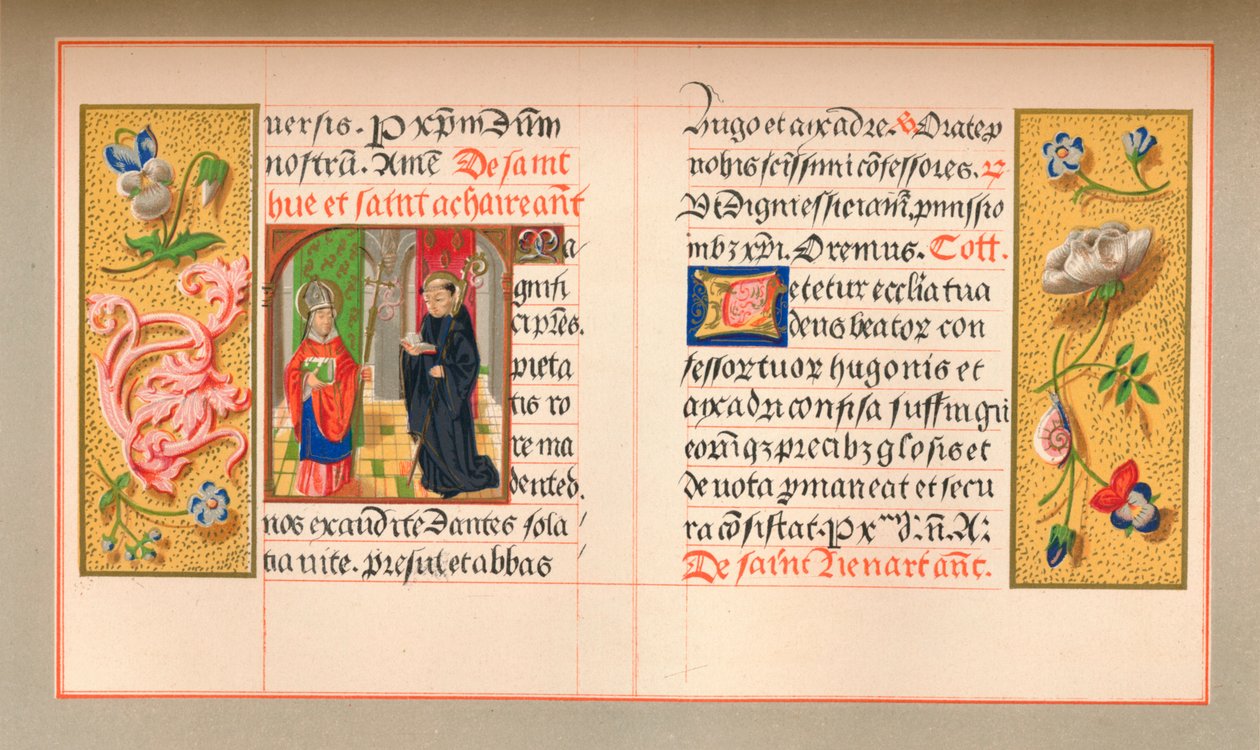 uersis. P xp̄m Dūm
nostrū. Amē De saint
hue et saint achaire añt
a
gnifi
ci p̄res.
pieta
tis ro
re ma
dented.
nos exaudite Dantes sola
tia uite. presul et abbas
hugo et aixadre. Orate p
nobis scissimi cōfessores.
Vt Digni
mbz xp̄i. Oremus. Coll.
etetur eccl̄ia tua
deus beator con
fessor tuor hugonis et
aixadri confisa suffragii
qz precibz glosis et
deuota ꝑmaneat et secu
ra cōsistat. P x
De saint Lienart añt.